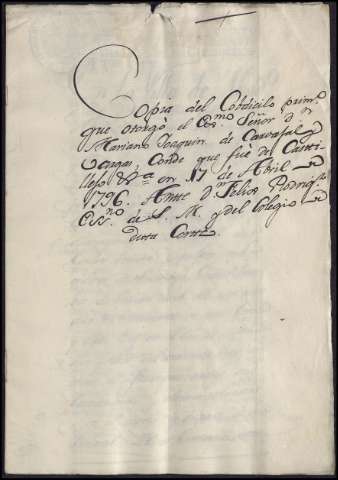 Copia del Cobdicilo prim.o
que otorgò el Ex.mo Señor D.n
Mariano Joaquin de Carvajal y
Vargas, Conde que fuè de Castri
llejo &.a en 17 de Abril de
1796. Ante D.n Felix Rodrig.z
Ess.no de S. M. y del Colegio de
dicha Corte.